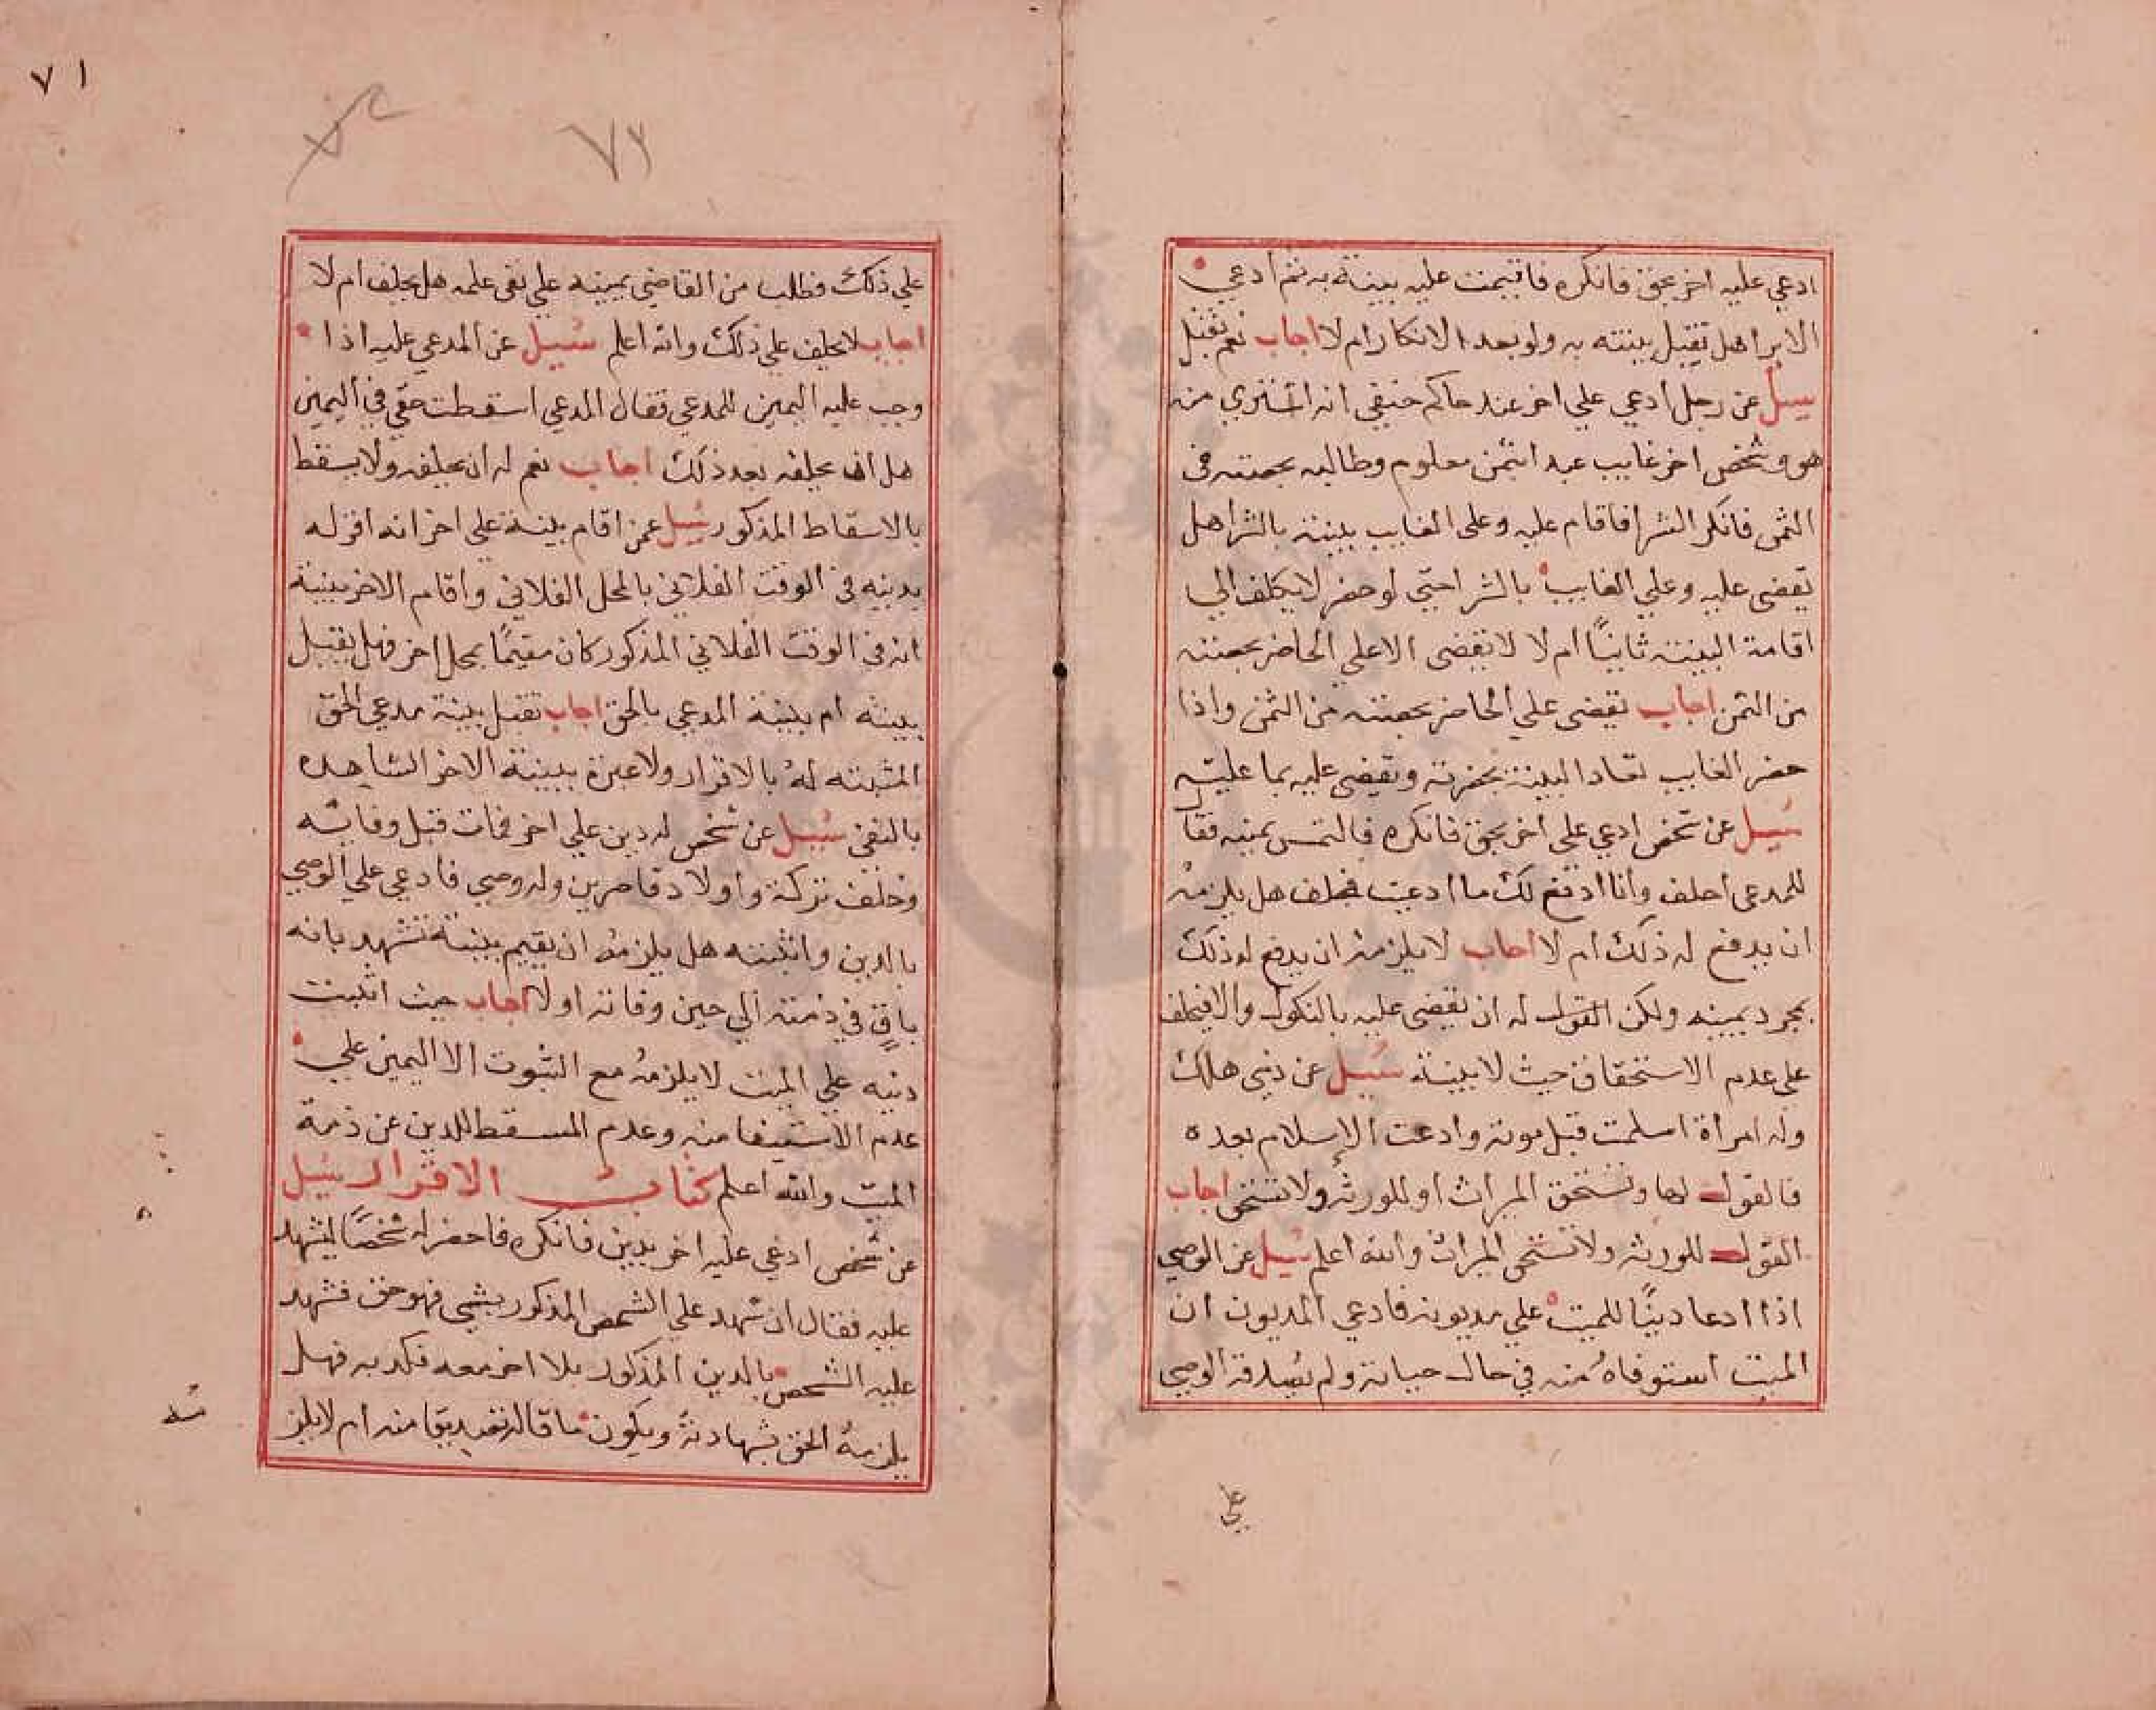 ادعي عليه اخر بحق فانكره فاقيمت عليه بينة به ثم ادعي
الابرا هل تقبل بينته به ولو بعد الانكار ام لا اجاب نعم تقبل
سيل عن رجل ادعي علي اخر عند حاكم حنيفي انه اشتري منه
هو وشخص اخر غايب عبد ابثمن معلوم وطالبه بحصته في
الثمن فانكر الشرا فاقام عليه وعلى الغايب بينته بالشرا هل
تقضى عليه وعلي الغايب بالشرا حتي لو حضر لا يكلف الي
اقامة البينته ثانيًا ام لا لا تقضى الاعلي الحاضر بحصته
من الثمن اجاب تقضى علي الحاضر بحصته من الثمن واذا
حضر الغايب تعاد البينته بحضرته ويقضى عليه بما عليه
سُيل عن شخص ادعي علي اخر بحق فانكره فالتمس يمينه فقال
للمدعى احلف وأنا ادفع لك ما ادعيت فحلف هل يلزمهُ
ان يدفع له ذلك ام لا اجاب لا يلزمه ان يدفع له ذلك
بمجرد يمينه ولكن القول له ان تقضى عليه بالنكول والا فيحلف
على عدم الاستحقاق حيث لا بينة سُيل عن ذمي هلك
وله امراة اسلمت قبل موته وادعت الاسلام بعده
فالقول لها وتستحق الميراث أو للورثه ولا تستحق اجاب
القول للورثه ولا تستحق الميراث والله اعلم سُيل عن الوصي
اذا ادعا دينًا للميت علي مديونه فادعي المديون ان
الميت استوفاهُ منه في حال حياته ولم يُصدقه الوصي
علي
٧١
٧١
علي ذلك وطلب من القاضي يمينه علي نفى علمه هل يحلف ام لا
اجاب لا يحلف علي ذلك والله اعلم سُيل عن المدعي عليه اذا
وجب عليه اليمين للمدعي فقال المدعي اسقطت حقّي في اليمين
هل له ان يحلفه بعد ذلك اجاب نعم له ان يحلفه ولا يسقط
بالاسقاط المذكور سُيل عمن اقام بينة علي اخر انه اقر له
بدينه في الوقت الفلاني بالمحل الفلاني واقام الاخر بينة
انه في الوقت الفلاني المذكور كان مقيمًا بمحل اخر فهل يقبل
بينته ام بينة المدعي بالحق اجاب تقبل بينة مدعي الحق
المثبته لهُ بالاقرار ولا عبرة ببينة الاخر الشاهده
بالنفى سُيل عن شخص له دين علي اخر فمات قبل وفايه
وخلف تركة واولاد قاصرين وله وصي فادعي علي الوصي
بالدين واثبته هل يلزمهُ ان يقيم بينة تشهد بانه
باقٍ في ذمته الي حين وفاته او لا اجاب حيث اثبت
دينه علي الميت لا يلزمهُ مع الثبوت الا اليمين علي
عدم الاستيفا منه وعدم المسقط للدين عن ذمة
الميت والله اعلم كتاب الاقرار سُيل
عن شخص ادعي عليه اخر بدين فانكره فاحضر له شخصًا ليشهد
عليه فقال ان شهد علي الشخص المذكور بشي فهو حق فشهد
عليه الشخص بالدين المذكور بلا اخر معه فكذبه فهل
يلزمهُ الحق بشهادته ويكون ما قاله تصديقا منه ام لا يلز